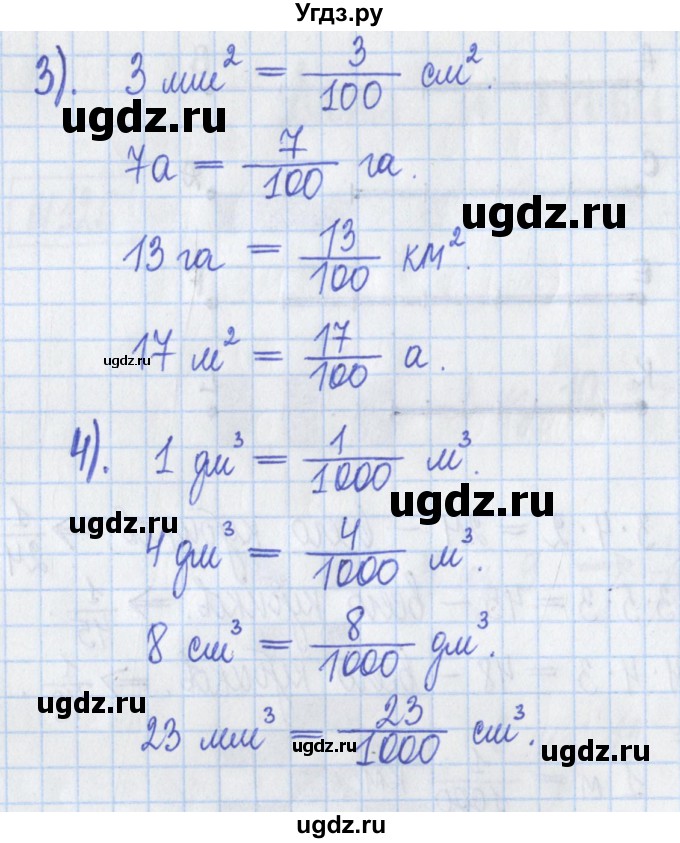 Угдз.ру
3). 3 мм² = 3/100 см².
ugdz.ru
7а = 7/100 га.
ugdz.ru
13 га = 13/100 км².
ugdz.ru
17 м² = 17/100 а.
4). 1 дм³ = 1/1000 м³.
ugdz.ru
ugdz.ru
4 дм³ = 4/1000 м³.
8 см³ = 8/1000 дм³.
ugdz.ru
23 мм³ = 23/1000 см³.
ugdz.ru
ugdz.ru
ugdz.ru